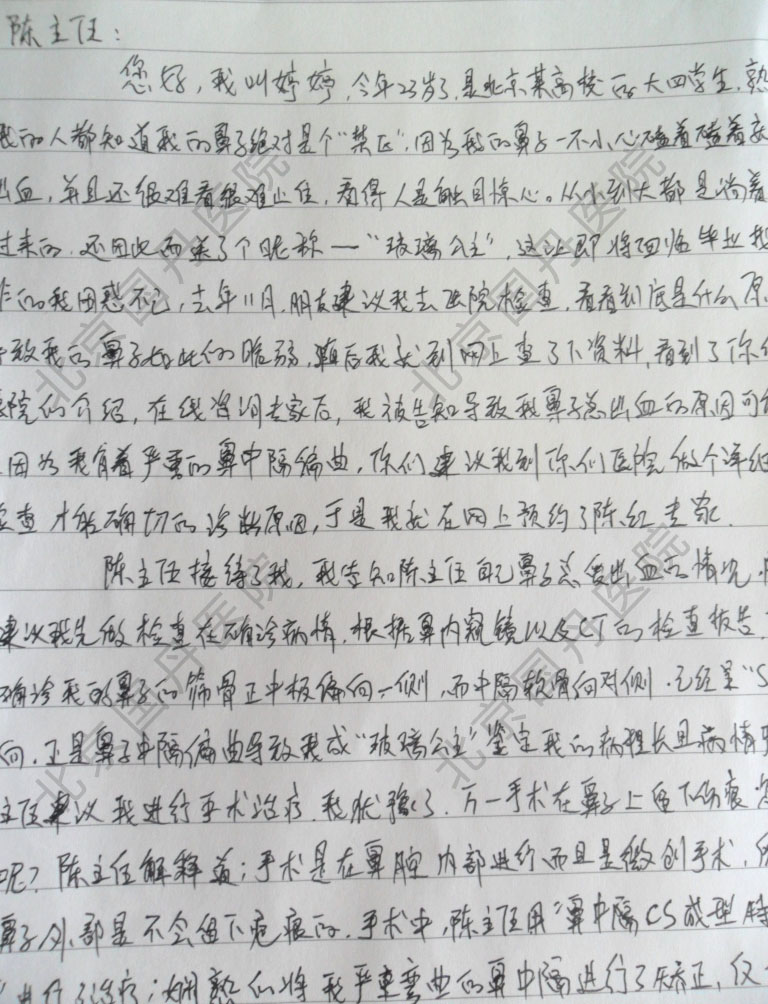 陈主任：
您好，我叫婷婷，今年23岁了，是北京某高校的大四学生，熟
我的人都知道我的鼻子绝对是个“禁区”，因为我的鼻子一不小心磕着碰着就
出血，并且还很难看很难止住，看得人是触目惊心。从小到大都是淌着
过来的，还因此而美了个昵称一“玻璃公主”，这让即将面临毕业找
作的我困惑不已，去年11月，朋友建议我去医院检查，看看到底是什么原
导致我的鼻子如此的脆弱，随后我就到网上查了下资料，看到了你们
医院的介绍，在线咨询专家后，我被告知导致我鼻子总出血的原因可能
因为我有着严重的鼻中隔偏曲，你们建议我到你们医院做个详细
检查才能确切的诊断原因，于是我就在网上预约了陈红专家．
陈主任接待了我，我告知陈主任自己鼻子总爱出血的情况，
建议我先做检查在确诊病情．根据鼻内窥镜以及CT的检查报告，
确诊我的鼻子的筛骨正中板偏向一侧，而中隔软骨向对侧．已经呈“S
向．正是鼻子中隔偏曲导致我成“玻璃公主”鉴定我的病程长且病情
主任建议我进行手术治疗．我犹豫了．万一手术在鼻子上留下伤痕怎
呢？陈主任解释道；手术是在鼻腔内部进行而且是微创手术，所
鼻子外部是不会留下疤痕的．手术中，陈主任用“鼻中隔CS成型
”进行了治疗；娴熟的将我严重弯曲的鼻中隔进行了矫正，仅
北京国丹医院
北京国丹医院
北京国丹医院
北京国丹医院